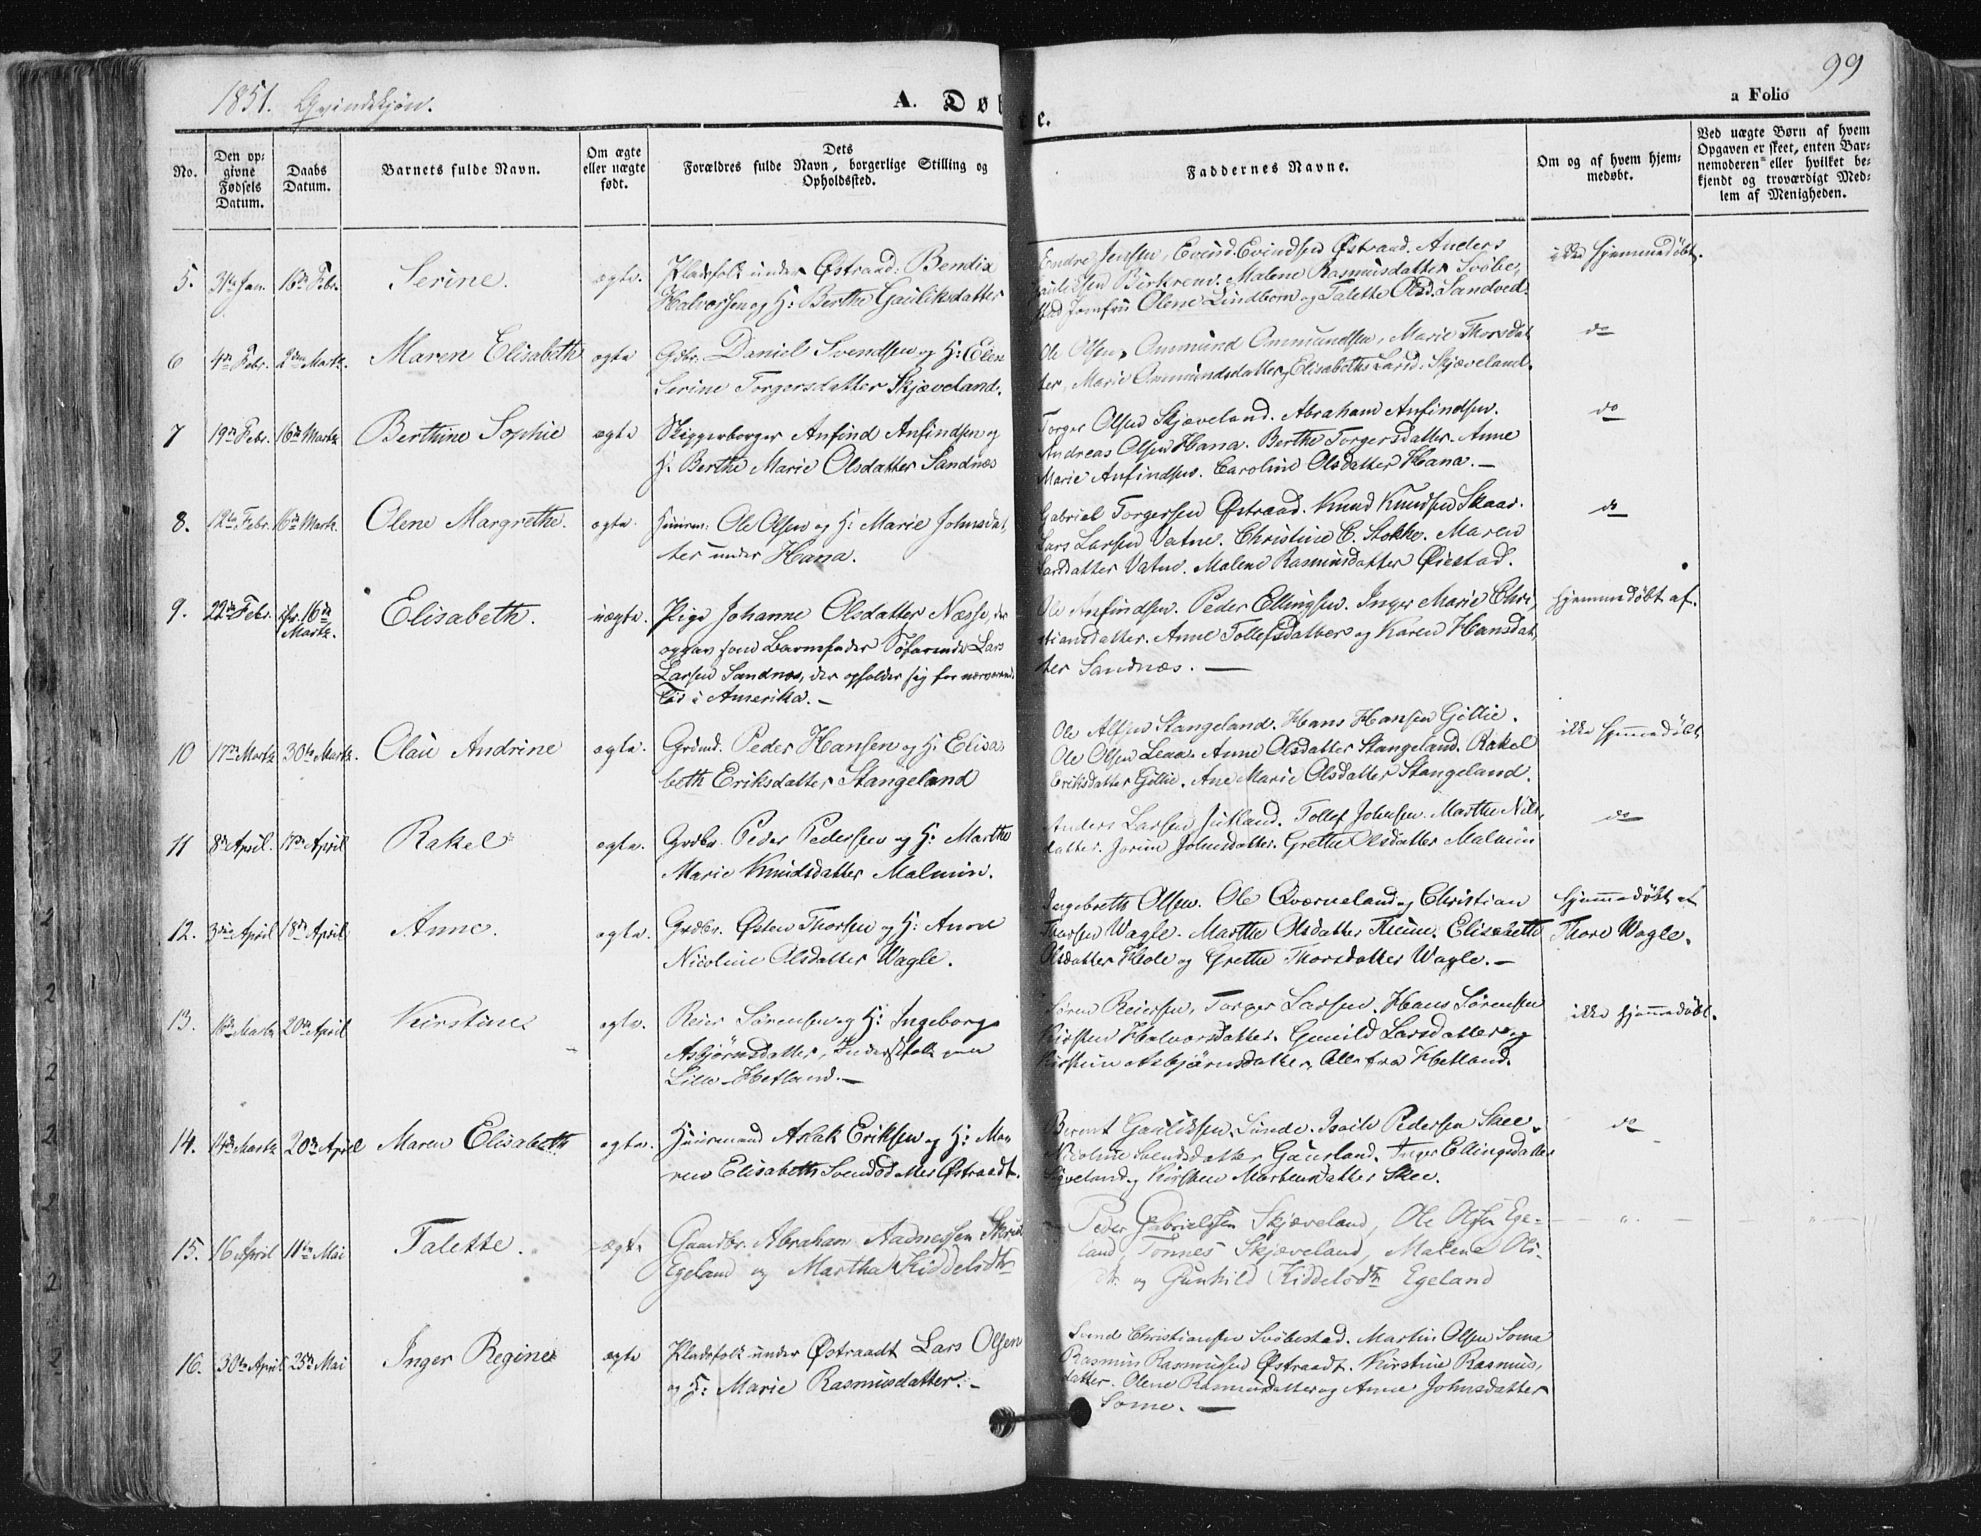 1851. Qvindekjøn.
99
A. Døbte.
a Folio
No.
Den opgivne Fødsels Datum.
Daabs Datum.
Barnets fulde Navn.
Om ægte eller uægte født.
Dets Forældres fulde Navn, borgerlige Stilling og Opholdssted.
Faddernes Navne.
Om og af hvem hjemmedøbt.
Ved uægte Børn af hvem Opgaven er skeet, enten Barnemoderen eller hvilket bekjendt og troværdigt Medlem af Menigheden.
5. 31te Jan. 16de Febr. Serine. ægte.
Pladsfolk under Østraad: Bendix
Halvorsen og H: Berthe Gauliksdatter
Endre Jensen, Evind Evindsen Østraad. Anders
Gauliksen Birkrem. Malene Rasmusdatter Svobe,
stad Jomfru Olene Lindborn og Talette Olsd. Sandved.
ikke hjemmedøbt.
6 4de Febr. 2den Martz. Maren Elisabeth ægte
Gdbr. Daniel Svendsen og H: Elen
Serine Torgersdatter Skjæveland.
Ole Olsen, Ommund Ommundsen, Marie Thorsdat
ter, Marie Ommundsdatter, Elisabeth Larsd. Skjæveland.
do
7 19de Febr. 16de Martz Berthine Sophie ægte
Skiggerborger Anfind Anfindsen og
H: Berthe Marie Olsdatter Sandnæs
Torger Olsen Skjæveland. Abraham Anfindsen.
Andreas Olsen Hana. Berthe Torgersdatter. Anne
Marie Anfindsen. Caroline Olsdatter Hana. —
do
8. 12te Febr. 16de Martz. Olene Margrethe. ægte.
Huusm: Ole Olsen og H: Marie Johnsdat,
ter under Hana.
Gabriel Torgersen Østraad. Knud Knudsen Skaar.
Lars Larsen Vatne. Christine C. Stokke. Maren
Larsdatter Vatne. Malene Rasmusdatter Øiestad.
do
9. 22de Febr. 16de Martz. Elisabeth. uægte.
Pige Johanne Olsdatter Næsse, der
opgav som Barnefader Søfarende Lars
Larsen Sandnæs, der opholder sig for nærværende
Tid i Amerika. —
Ole Anfindsen. Peder Ellingsen. Inger Marie Chri,
stiansdatter. Anne Tollefsdatter og Karen Hansdat,
ter Sandnæs. —
Hjemmedøbt af.
10 17de Martz 30te Martz. Olau Andrine ægte.
Grdmd. Peder Hansen og H: Elisa
beth Eriksdatter Stangeland
Ole Alfsen Stangeland. Hans Hansen Gillie.
Ole Olsen Leaa. Anne Olsdatter Stangeland. Rakel
Eriksdatter Gillie. Ane Marie Olsdatter Stangeland.
ikke hjemmedøbt
11 8de April. 17de April Rakel ægte.
Grdbr. Peder Pedersen og H: Marthe
Marie Knudsdatter Malmin.
Anders Larsen Jutland. Tollef Johnsen. Marthe Nils,
datter. Jorine Johnsdatter. Grethe Olsdatter Malmin
do
12. 3die April 18de April Anne. ægte.
Grdbr. Østen Thorsen og H: Anne
Nicoline Olsdatter Wagle.
Ingebreth Olsen. Ole Qværneland og Christian
Thorsen Wagle. Marthe Olsdatter Thime. Elisabeth
Olsdatter Hole og Grethe Thorsdatter Wagle. —
Hjemmedøbt af
Thore Wagle.
13. 16de Martz 20de April Kirstine ægte.
Reier Sørensen og H: Ingeborg
Asbjørnsdatter, Inderstfolk paa
Lille-Hetland. —
Søren Reiersen, Torger Larsen, Hans Sørensen
Kirsten Halvorsdatter. Gunild Larsdatter og
Kirstine Asbjørnsdatter, Alle fra Hetland.
ikke hjemmedøbt.
14. 14de Martz 20de April Maren Elisabeth ægte.
Huusmand Aslak Eriksen og H: Ma,
ren Elisabeth Svendsdatter Østraadt.
Bernt Gauliksen Lunde. Peder Pedersen Skee.
Nicoline Svendsdatter Gausland. Inger Ellingsdatter
Lyveland og Kirsten Mortensdatter Skee.
do
15. 16 April 11te Mai Talette. ægte
Gaardbr. Abraham Aadnessen
Egeland og Martha Kiddelsdtr
Peder Gabrielsen Skjæveland, Ole Olsen Ege-
land, Tønnes Skjæveland, Malene Ols-
dtr. og Gunhild Kiddelsdtr Egeland
— „ —
16. 30te April 25de Mai Inger Regine ægte
Pladsfolk under Østraadt Lars Olsen
og H: Marie Rasmusdatter. —
Svend Christiansen Svobestad. Martin Olsen Soma
Rasmus Rasmussen Østraadt. Kirstine Rasmus,
datter. Olene Rasmusdatter og Anne Johnsdatter
Some. —